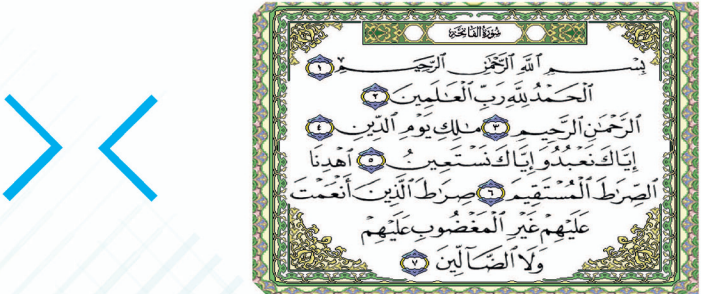 سُورَةُ الْفَاتِحَةِ
بِسْمِ ٱللَّهِ ٱلرَّحْمَٰنِ ٱلرَّحِيمِ ١
ٱلْحَمْدُ لِلَّهِ رَبِّ ٱلْعَٰلَمِينَ ٢
ٱلرَّحْمَٰنِ ٱلرَّحِيمِ ٣ مَٰلِكِ يَوْمِ ٱلدِّينِ ٤
إِيَّاكَ نَعْبُدُ وَإِيَّاكَ نَسْتَعِينُ ٥ ٱهْدِنَا
ٱلصِّرَٰطَ ٱلْمُسْتَقِيمَ ٦ صِرَٰطَ ٱلَّذِينَ أَنْعَمْتَ
عَلَيْهِمْ غَيْرِ ٱلْمَغْضُوبِ عَلَيْهِمْ
وَلَا ٱلضَّآلِّينَ ٧